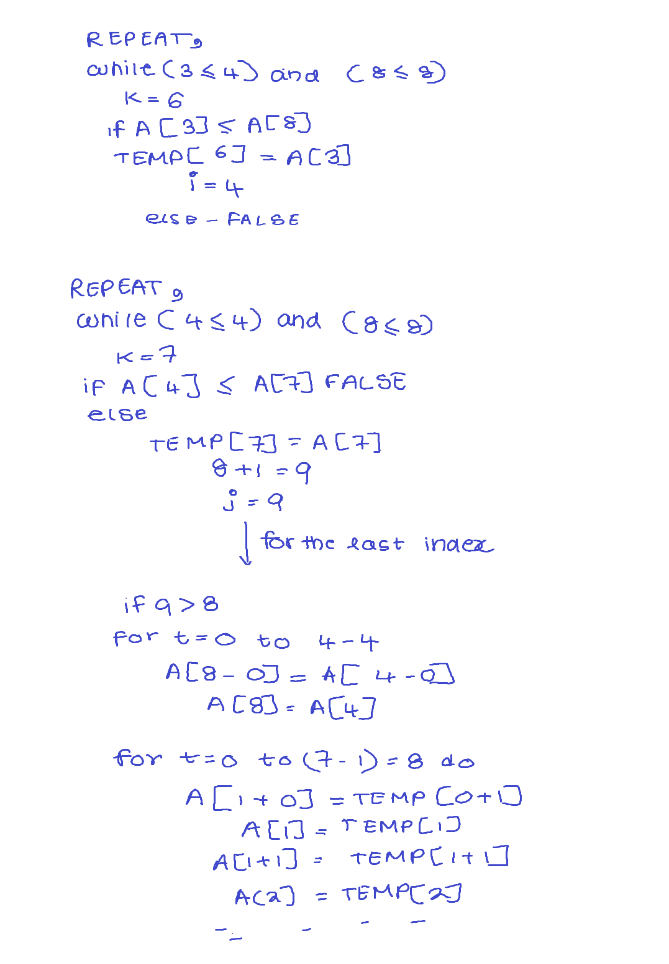 REPEAT,
while (3 ≤ 4) and (8 ≤ 8)
K = 6
if A [3] ≤ A[8]
TEMP[ 6] = A[3]
i = 4
else - FALSE
REPEAT ,
while ( 4 ≤ 4) and (8 ≤ 8)
K = 7
if A [4] ≤ A[7] FALSE
else
TEMP [7] = A [7]
8 + 1 = 9
j = 9
↓ for the last index
if 9 > 8
for t = 0 to 4 - 4
A[8 - 0] = A[ 4 - 0]
A [8] = A[4]
for t = 0 to (7 - 1) = 8 do
A [1 + 0] = TEMP [0+1]
A[1] = TEMP[1]
A[1+1] = TEMP[1+1]
A(2] = TEMP[2]
-- - - -